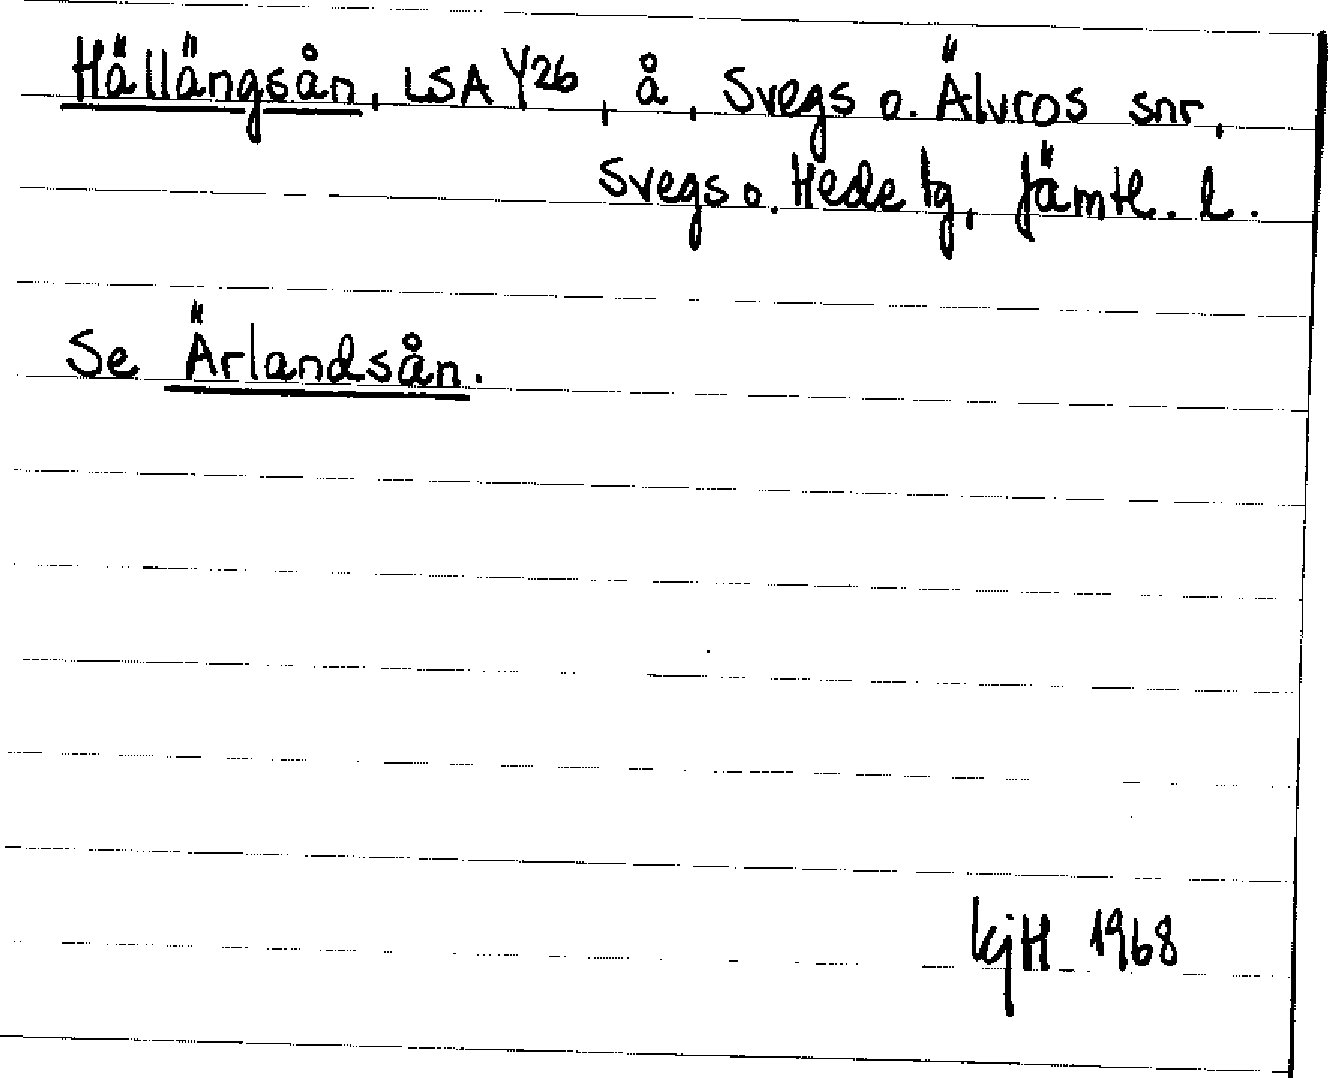 Hällängsån, LSA Y26, å, Svegs o. Älvros snr,
Svegs o. Hede tg, Jämtl. l.
Se Ärlandsån.
KjH 1968